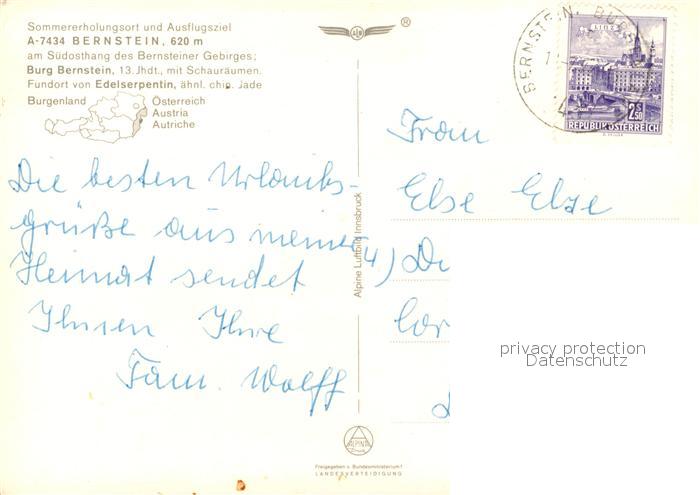 Sommererholungsort und Ausflugsziel
A-7434 BERNSTEIN, 620 m
am Südosthang des Bernsteiner Gebirges;
Burg Bernstein, 13. Jhdt., mit Schauräumen.
Fundort von Edelserpentin, ähnl. chin. Jade
Burgenland
Österreich
Austria
Autriche
Die besten Urlaubs-
grüße aus meiner
Heimat sendet
Ihnen Ihre
Fam. Wolff
Alpine Luftbild Innsbruck
®
BERNSTEIN, BURG
LINZ
2.50
S
REPUBLIK ÖSTERREICH
Frau
Else Else
4)
privacy protection
Datenschutz
ALPINA
Freigegeben v. Bundesministerium f.
LANDESVERTEIDIGUNG